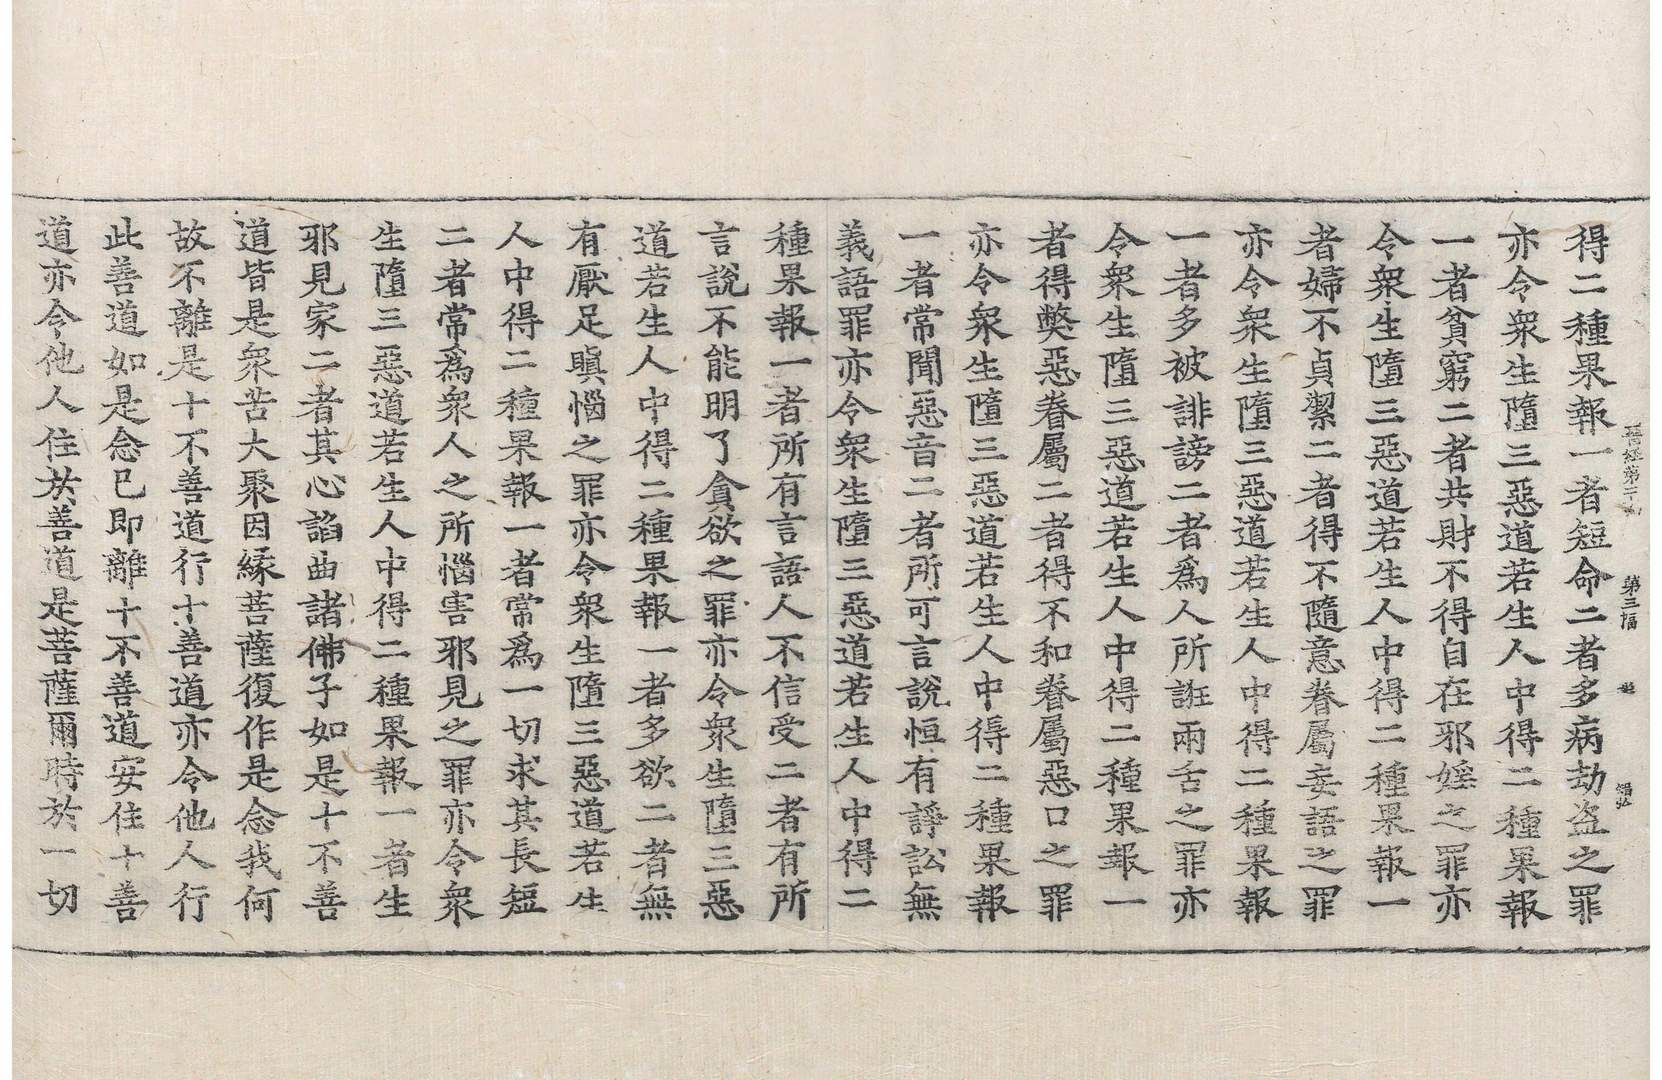 晉經第二十 第三幅
得二種果報一者短命二者多病劫盗之罪
亦令衆生墮三惡道若生人中得二種果報
一者貧窮二者共財不得自在邪婬之罪亦
令衆生墮三惡道若生人中得二種果報一
者婦不貞潔二者得不隨意眷屬妄語之罪
亦令衆生墮三惡道若生人中得二種果報
一者多被誹謗二者爲人所誑兩舌之罪亦
令衆生墮三惡道若生人中得二種果報一
者得獘惡眷屬二者得不和眷屬惡口之罪
亦令衆生墮三惡道若生人中得二種果報
一者常聞惡音二者所可言說恒有諍訟無
義語罪亦令衆生墮三惡道若生人中得二
種果報一者所有言語人不信受二者有所
言說不能明了貪欲之罪亦令衆生墮三惡
道若生人中得二種果報一者多欲二者無
有厭足瞋惱之罪亦令衆生墮三惡道若生
人中得二種果報一者常爲一切求其長短
二者常爲衆人之所惱害邪見之罪亦令衆
生墮三惡道若生人中得二種果報一者生
邪見家二者其心諂曲諸佛子如是十不善
道皆是衆苦大聚因緣菩薩復作是念我何
故不離是十不善道行十善道亦令他人行
此善道如是念已即離十不善道安住十善
道亦令他人住於善道是菩薩爾時於一切